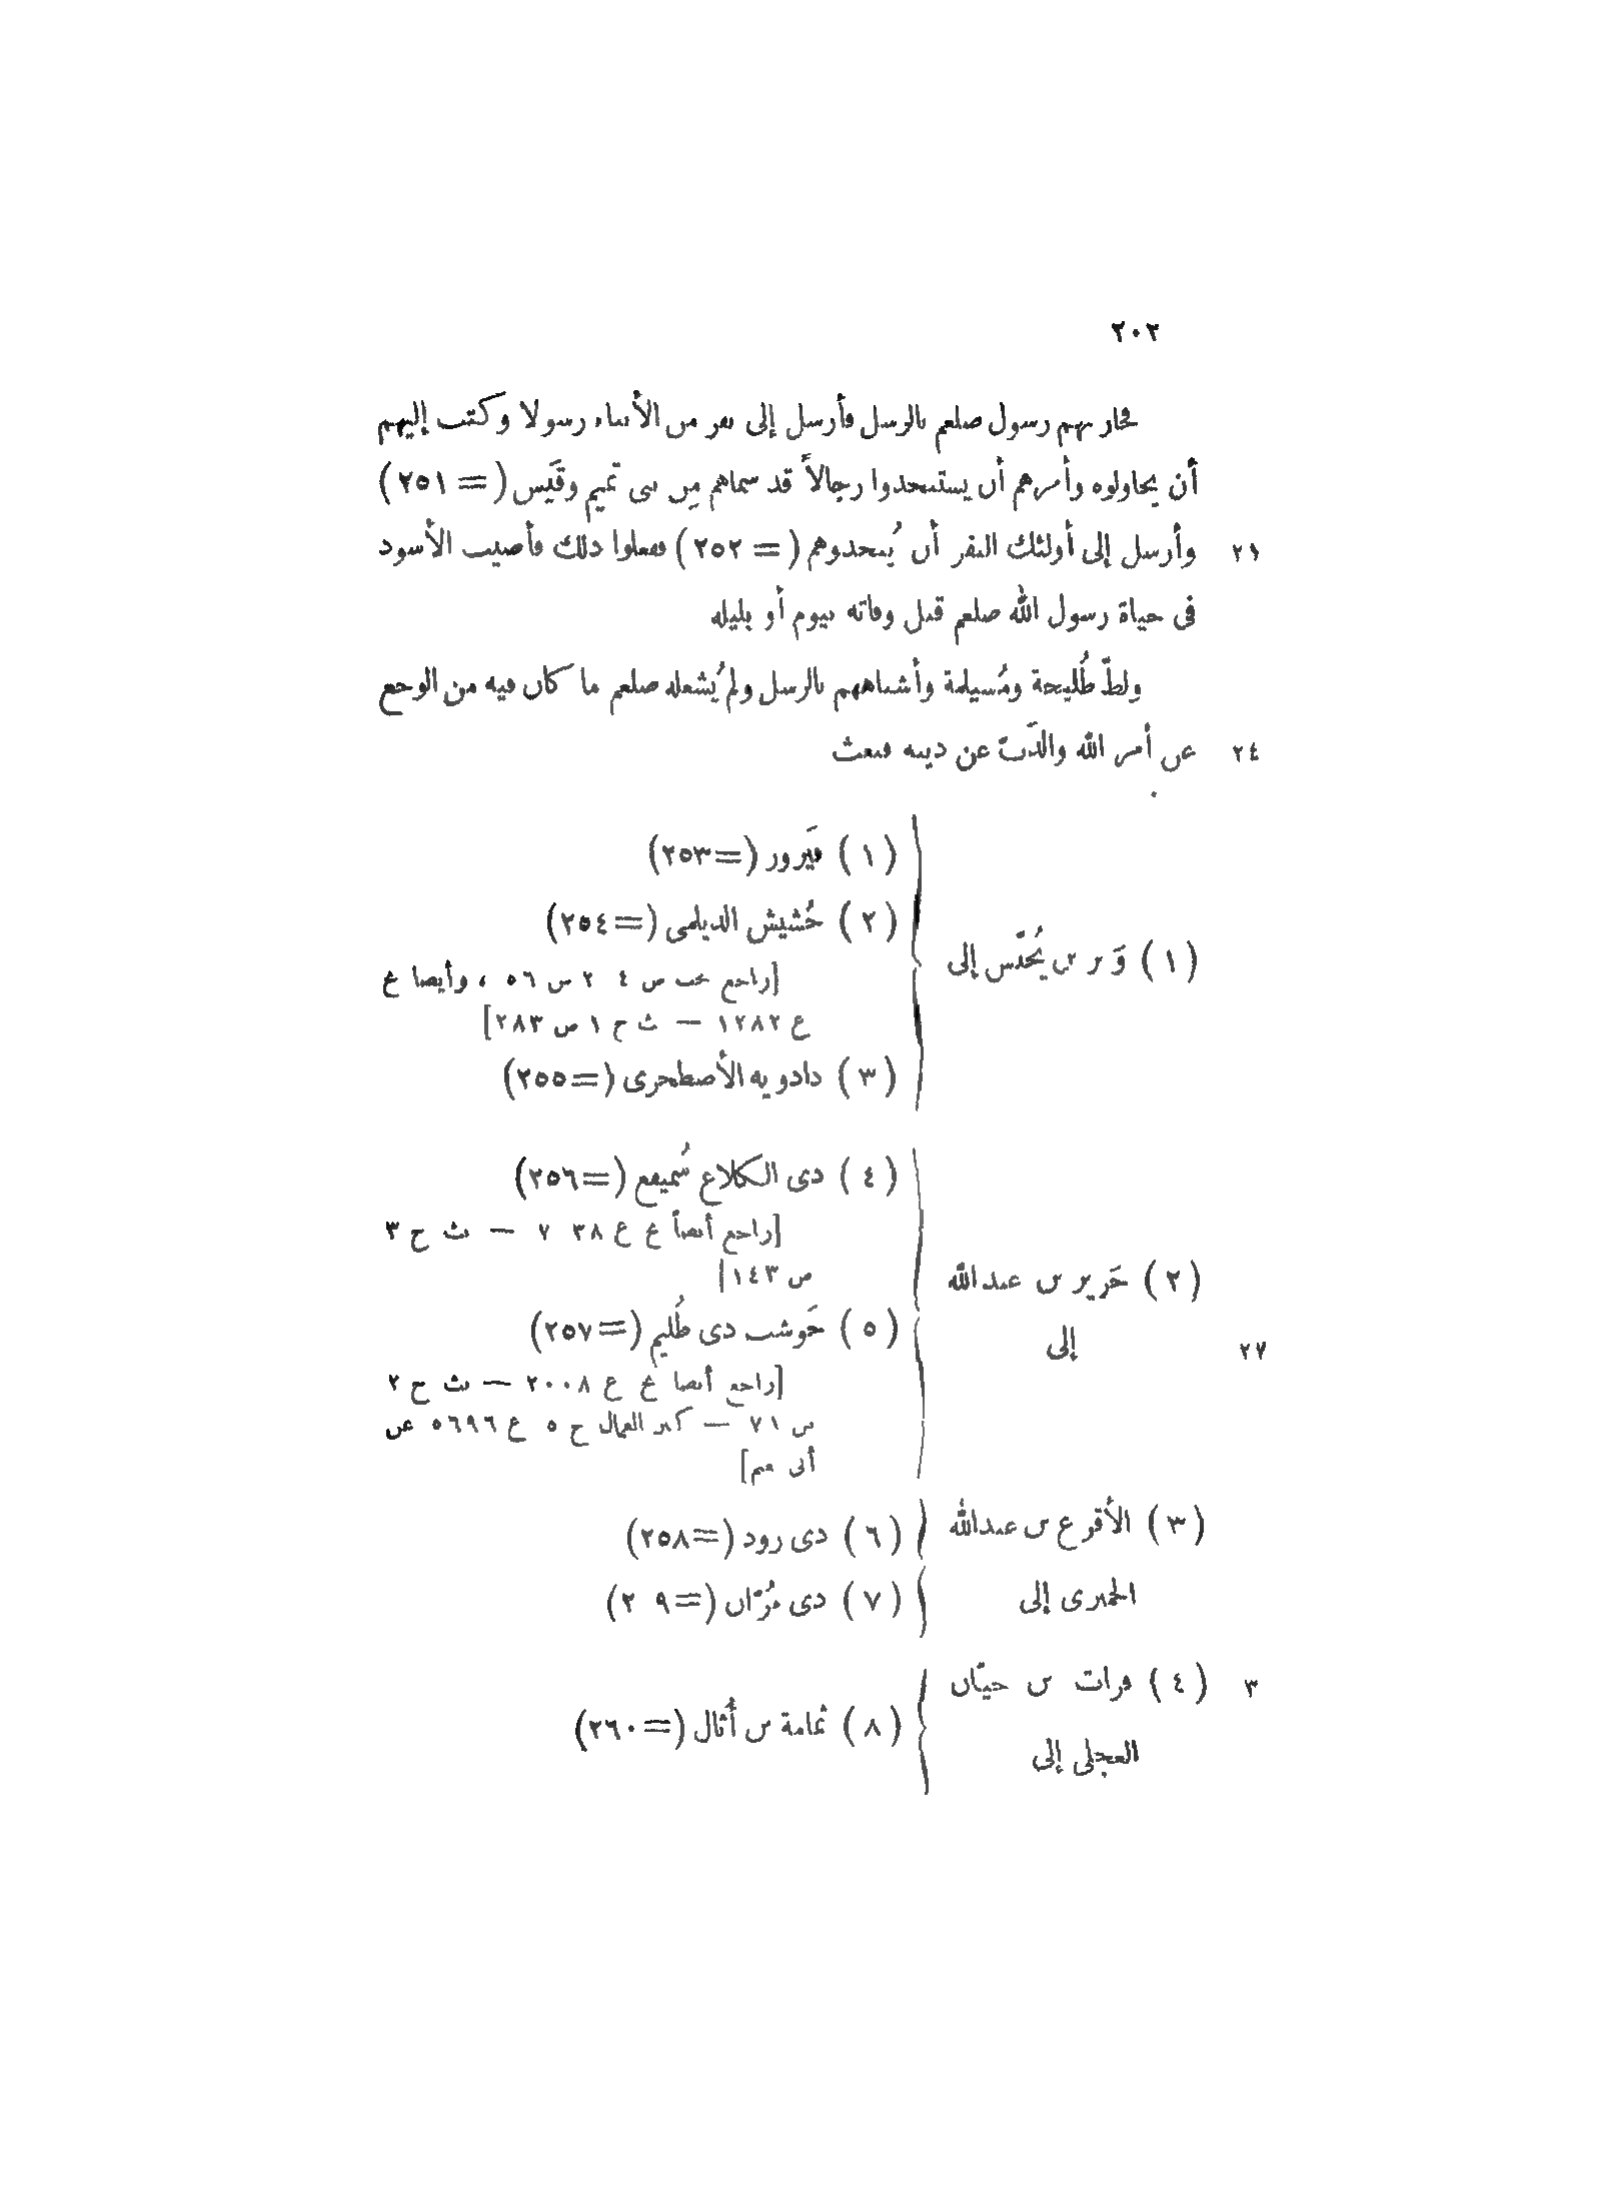 ٢٠٢
فحاربهم رسول صلعم بالرسل فأرسل إلى نفر من الأبناء رسولا وكتب إليهم
أن يحاولوه وأمرهم أن يستنجدوا رجالاً قد سماهم مِن بنى تميم وقَيس (= ٢٥١)
٢١ وأرسل إلى أولئك النفر أن يُنجدوهم (= ٢٥٢) ففعلوا ذلك فأصيب الأسود
فى حياة رسول الله صلعم قبل وفاته بيوم أو بليلة
ولطّ طُليحة ومُسيلمة وأشباههم بالرسل ولم يُشغله صلعم ما كان فيه من الوجع
٢٤ عن أمر الله والذّبّ عن دينه فبعث
(١) وَبر بن يُحنّس إلى
(١) فيَروز (=٢٥٣)
(٢) خُشيش الديلمى (=٢٥٤)
[راجع عب ص ٤ ٢ س ٥٦ ، وأيضا ع
ع ١٢٨٢ — ث ج ١ ص ٢٨٣]
(٣) دادويه الأصطخرى (=٢٥٥)
(٢) جَرير بن عبدالله
إلى
٢٧
(٤) ذى الكلاع سُميفع (=٢٥٦)
[راجع أيضاً ع ع ٣٨ ٧ — ث ج ٣
ص ١٤٣]
(٥) حَوشب ذى ظُليم (=٢٥٧)
[راجع أيضا ع ع ٢٠٠٨ — ث ج ٢
س ٧١ — كنز العمال ج ٥ ع ٥٦٩٦ عن
أبى نعيم]
(٣) الأقرع بن عبدالله
الحميرى إلى
(٦) ذى زود (=٢٥٨)
(٧) ذى مُرّان (=٩ ٢)
٣ (٤) فرات بن حيّان
العجلى إلى
(٨) ثمامة بن أُثال (=٢٦٠)